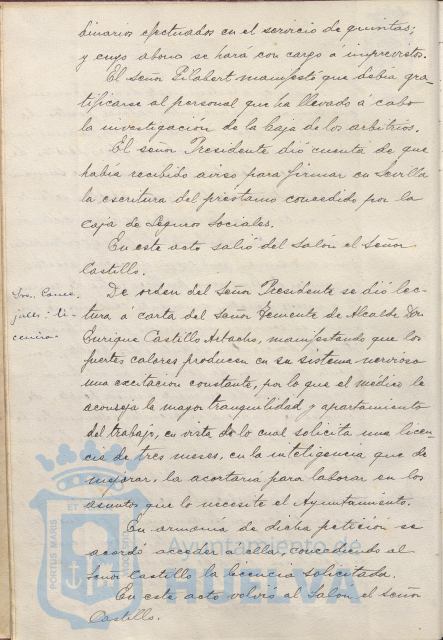 dinarios efectuados en el servicio de quintas;
y cuyo abono se hará con cargo á imprevistos.
El señor Gilabert manifestó que debia gra-
tificarse al personal que ha llevado á cabo
la investigación de la Caja de los arbitrios.
El señor Presidente dió cuenta de que
habia recibido aviso para firmar en Sevilla
la escritura del préstamo concedido por la
Caja de Seguros Sociales.
En este acto salió del Salon el Señor
Castillo.
Sres. Conce-
jales: li-
cencia.
De orden del Señor Presidente se dió lec-
tura á carta del Señor Teniente de Alcalde Don
Enrique Castillo manifestando que los
fuertes calores producen en su sistema nervioso
una excitacion constante, por lo que el médico le
aconseja la mayor tranquilidad y apartamiento
del trabajo, en vista de lo cual solicita una licen-
cia de tres meses, en la inteligencia que de
mejorar, la acortaria para laborar en los
asuntos que lo necesite el Ayuntamiento.
En armonia de dicha peticion se
acordó acceder á ella, concediendo al
señor Castillo la licencia solicitada.
En este acto volvió al Salon el señor
Castillo.
PORTUS MARIS
ET
CUSTODIA
Ayuntamiento de
HUELVA